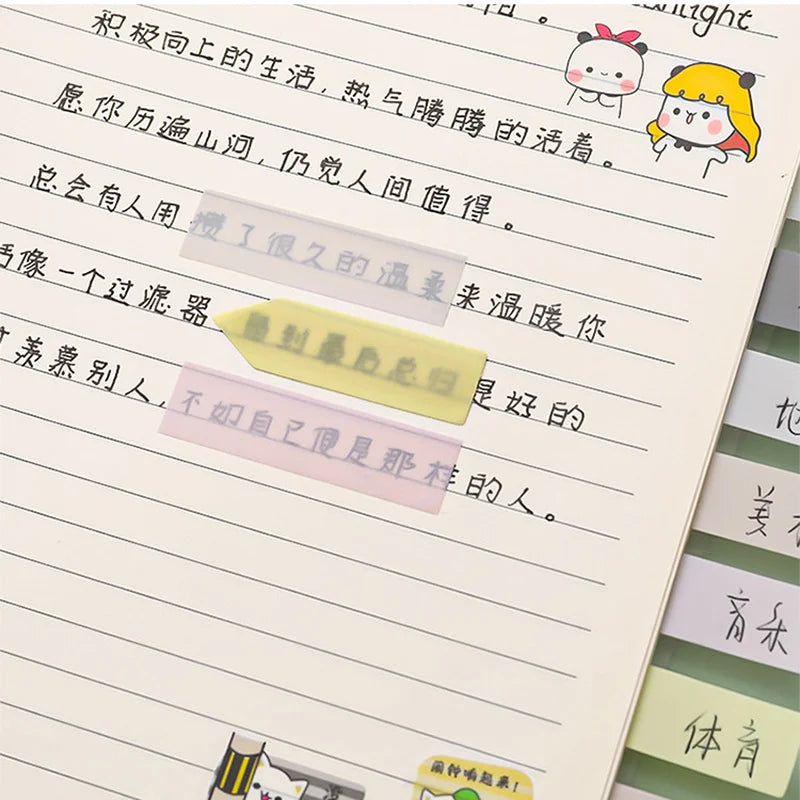 积极向上的生活，热气腾腾的活着。
愿你历遍山河，仍觉人间值得。
总会有人用攒了很久的温柔来温暖你
像一个过滤器 最到最后总归是好的
羡慕别人，不如自己便是那样的人。
音乐
体育
闹钟响起来！